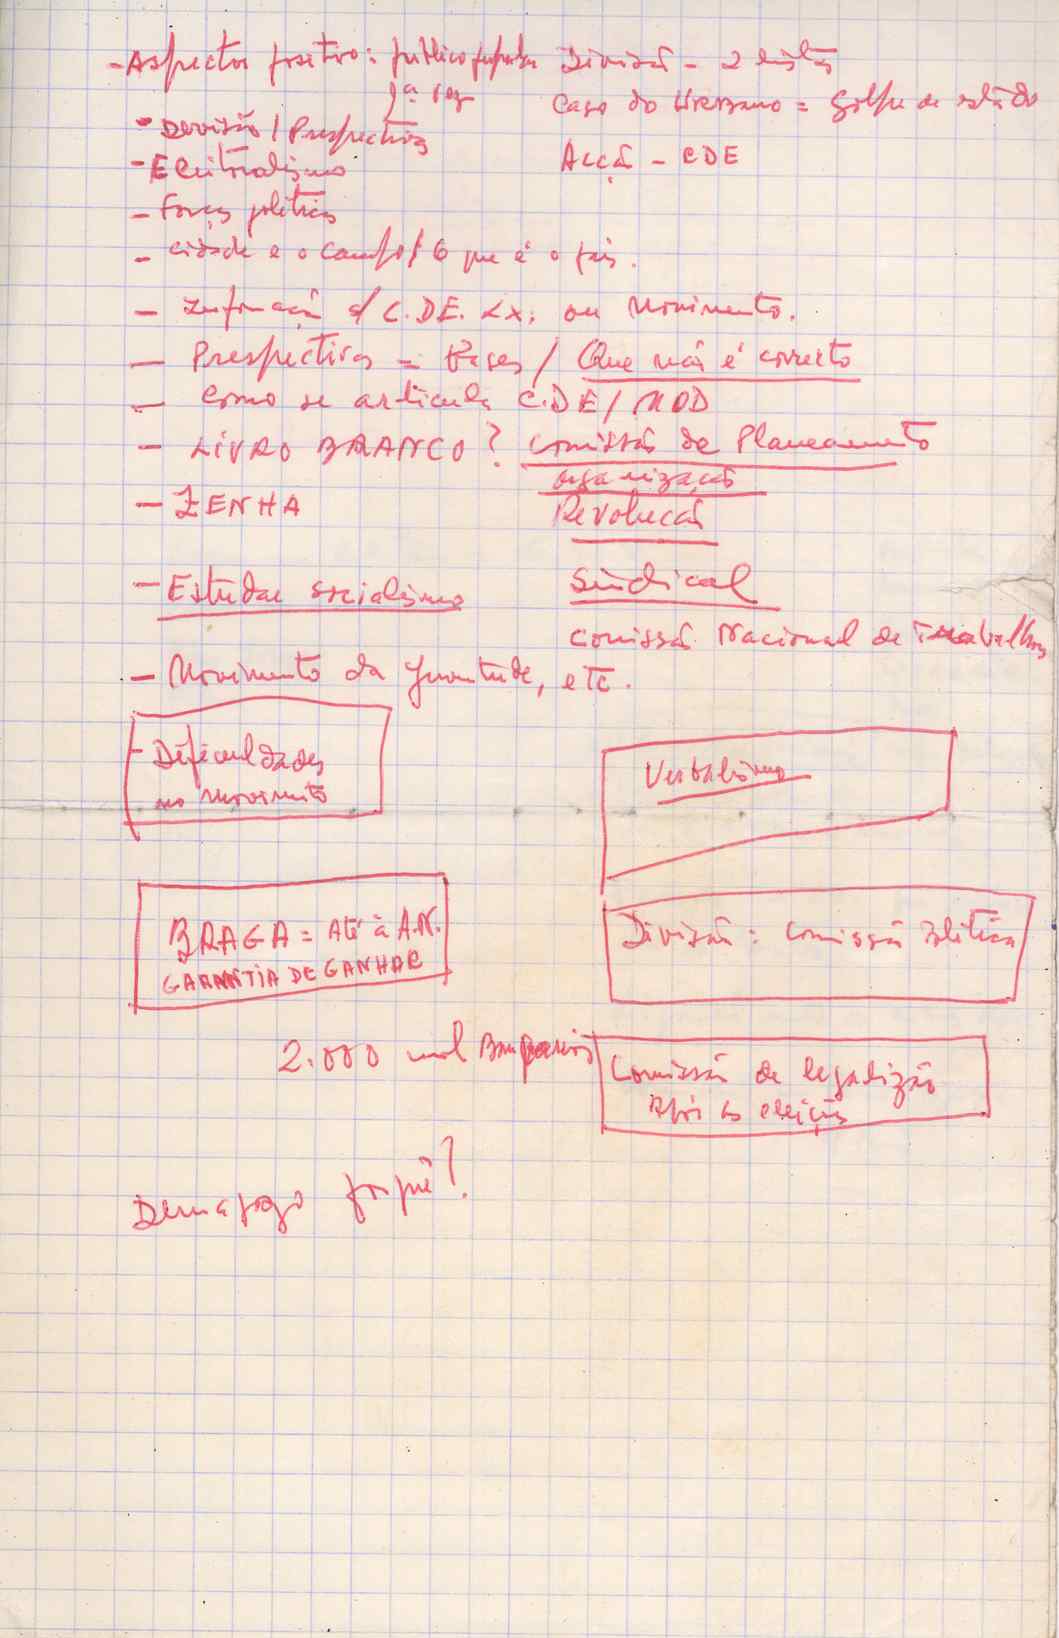 - Aspectos positivo: público popular
1ª vez
- Devisão / Prespectivas
- Eleitoralismo
- Forças políticas
- cidade e o campo / O que é o país.
Divisão - 2 listas
Caso do Urbano = golpe de estado
Acção - CDE
- Informação d/ C.D.E. Lx. ou Movimento.
- Prespectivas - Bases / Que não é correcto
- Como se articula C.D.E / MOD
- LIVRO BRANCO? Comissão de Planeamento
organização
- ZENHA
Revolução
- Estudar socialismo
Sindical
Comissão Nacional de Trabalhos
- Movimento da Juventude, etc.
- Dificuldades
no movimento
Verbalismo
BRAGA = Até à A.N.
GARANTIA DE GANHAR
Divisão: Comissão Política
2.000 mil
Comissão de legalização
Após as eleições
Demagogo porquê?